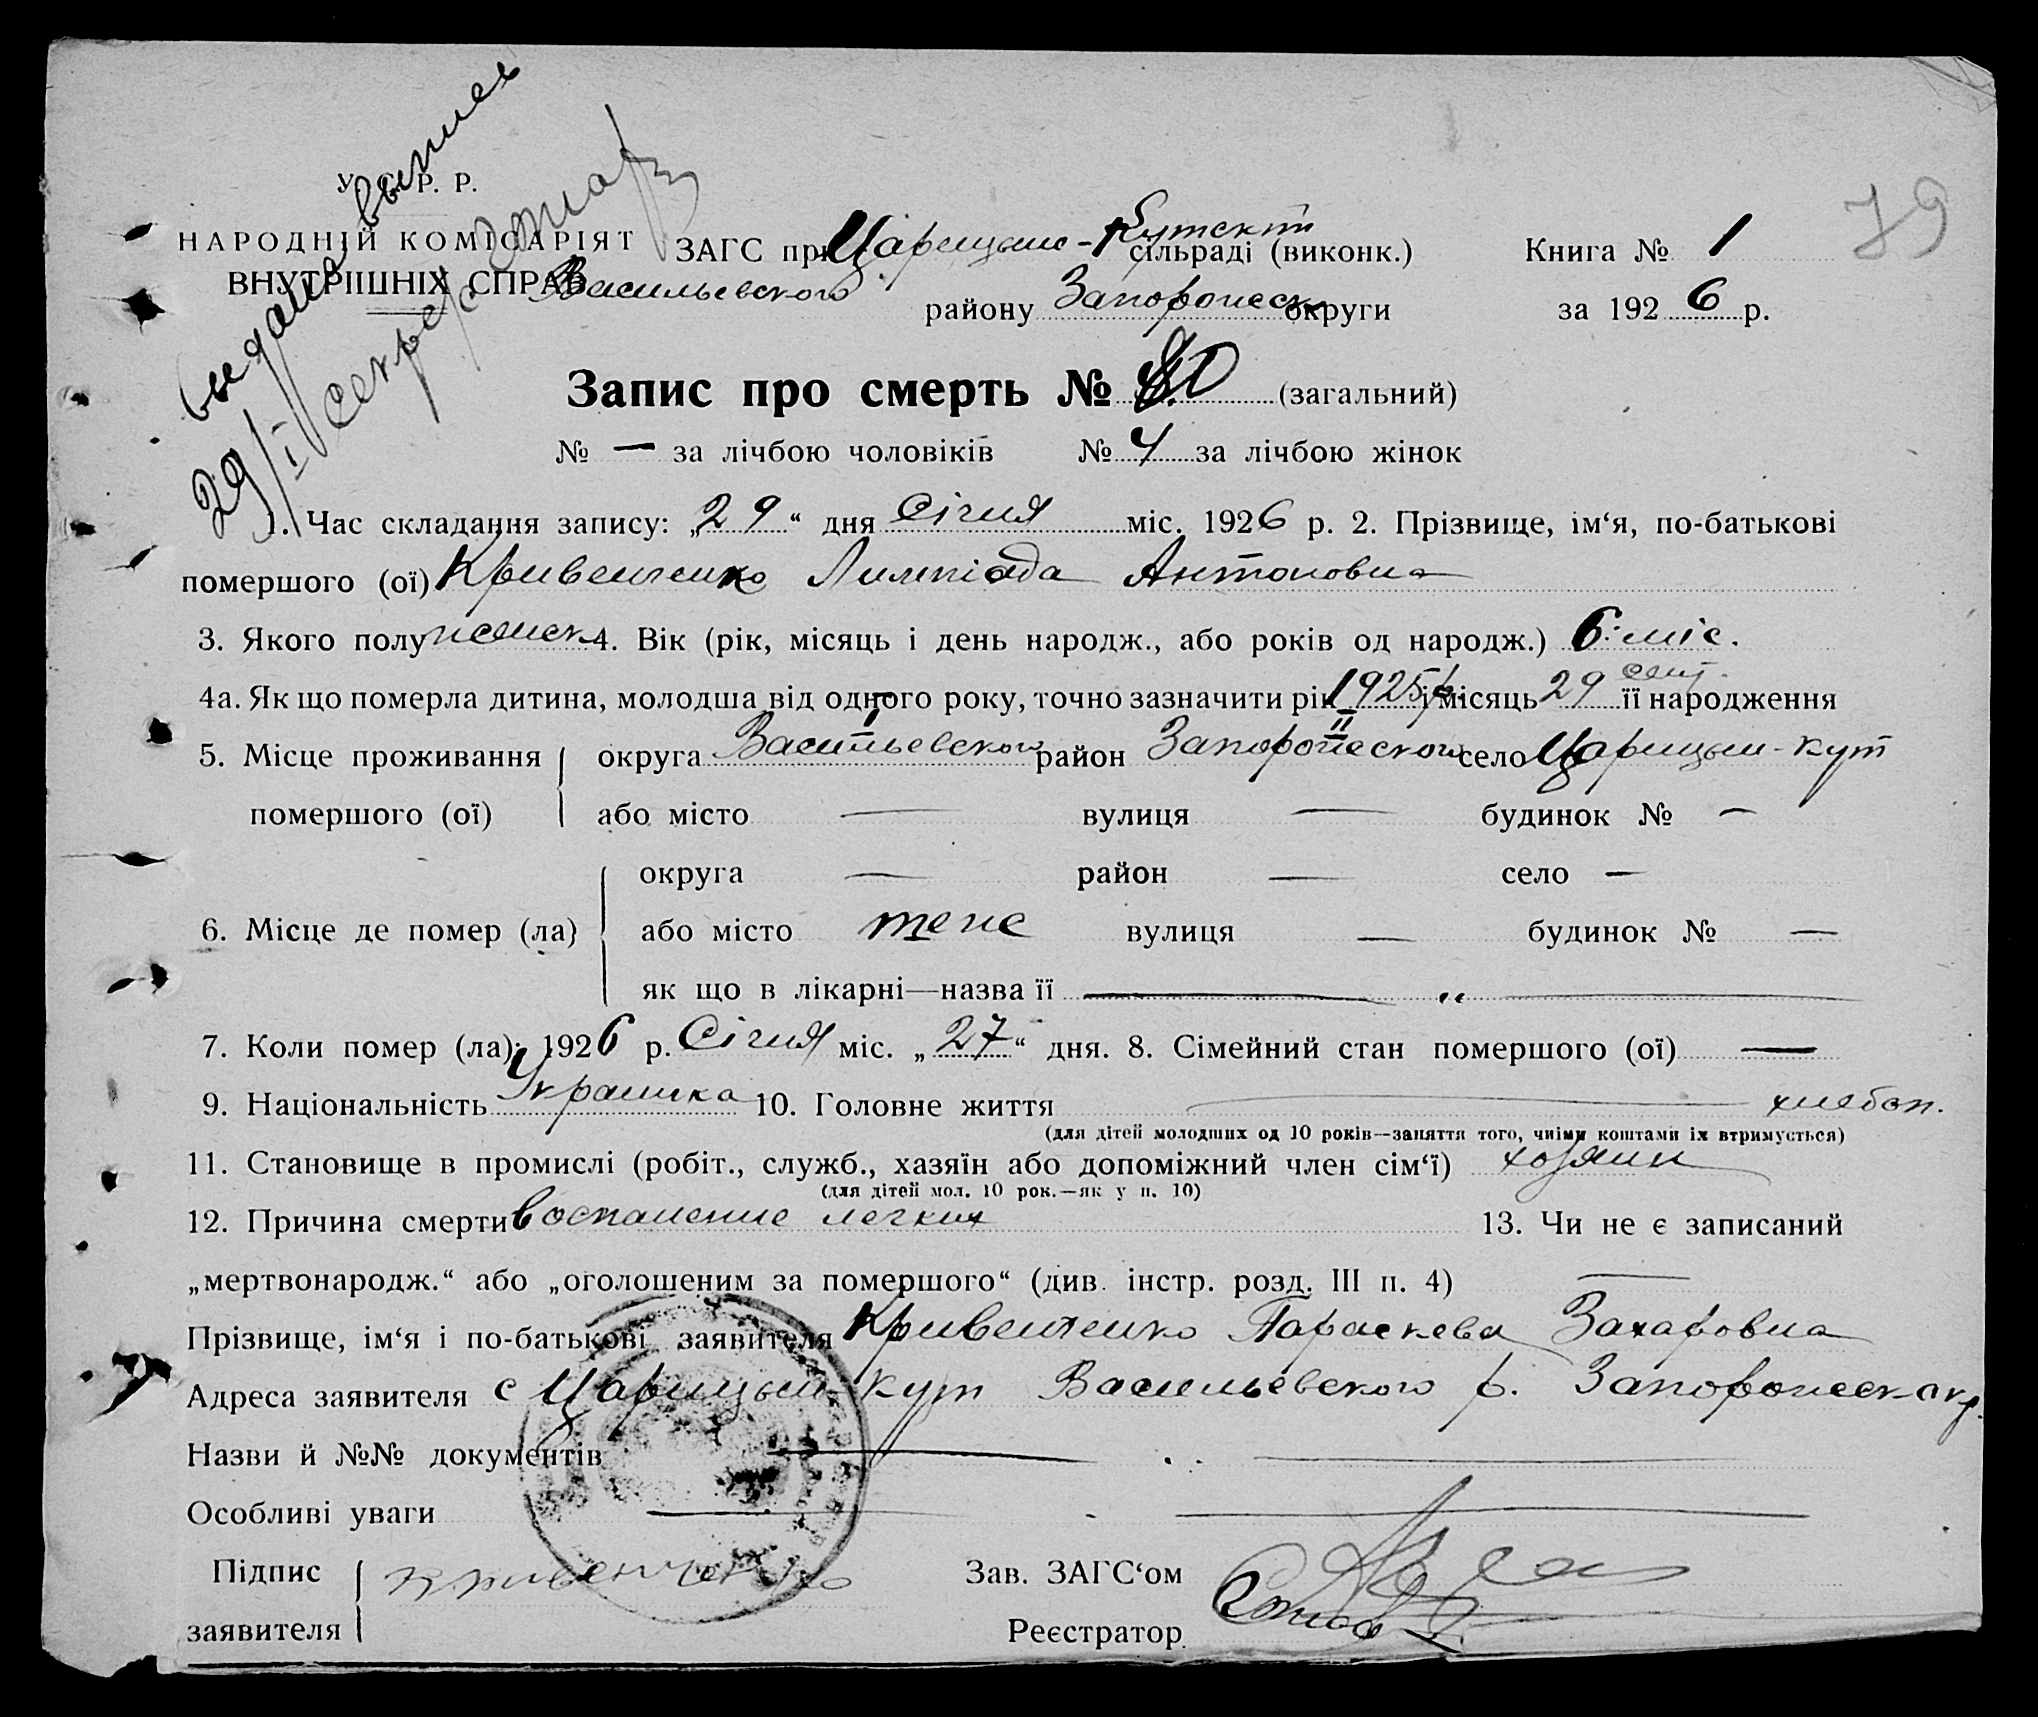 выдана выпись
29/I секрет
79
У. С. Р. Р.
НАРОДНІЙ КОМІСАРІЯТ
ВНУТРІШНІХ СПРАВ
ЗАГС при Царицыно-Кутскій сільраді (виконк.) Книга № 1
Васильевского району Запорожеск округи за 1926 р.
Запис про смерть № (загальний)
№ — за лічбою чоловіків № 4 за лічбою жінок
1. Час складання запису: „29“ дня Січня міс. 1926 р. 2. Прізвище, ім‘я, по-батькові
помершого (ої) Кривенченко Лимпіада Антоновна
3. Якого полу женск 4. Вік (рік, місяць і день народж., або років од народж.) 6 міс.
4а. Як що померла дитина, молодша від одного року, точно зазначити рік 1925 р. і місяць 29 сент. її народження
5. Місце проживання округа Васильевского район Запорожеского село Царицын-кут
помершого (ої) або місто — вулиця — будинок № —
округа — район — село —
6. Місце де помер (ла) або місто теже вулиця — будинок № —
як що в лікарні—назва її — „ —
7. Коли помер (ла): 1926 р. Січня міс. „27“ дня. 8. Сімейний стан помершого (ої) —
9. Національність Украинка 10. Головне життя — хлебоп.
(для дітей молодших од 10 років—заняття того, чиїми коштами їх втримується)
11. Становище в промислі (робіт., служб., хазяїн або допоміжний член сім‘ї) хозяин
(для дітей мол. 10 рок.—як у п. 10)
12. Причина смерти воспаление легких 13. Чи не є записаний
„мертвонародж.“ або „оголошеним за помершого“ (див. інстр. розд. III п. 4) —
Прізвище, ім‘я і по-батькові заявителя Кривенченко Параскева Захаровна
Адреса заявителя с Царицын-кут Васильевского р. Запорожеск окр.
Назви й №№ документів —
Особливі уваги —
Підпис заявителя Кривенченко
Зав. ЗАГС‘ом
Реєстратор